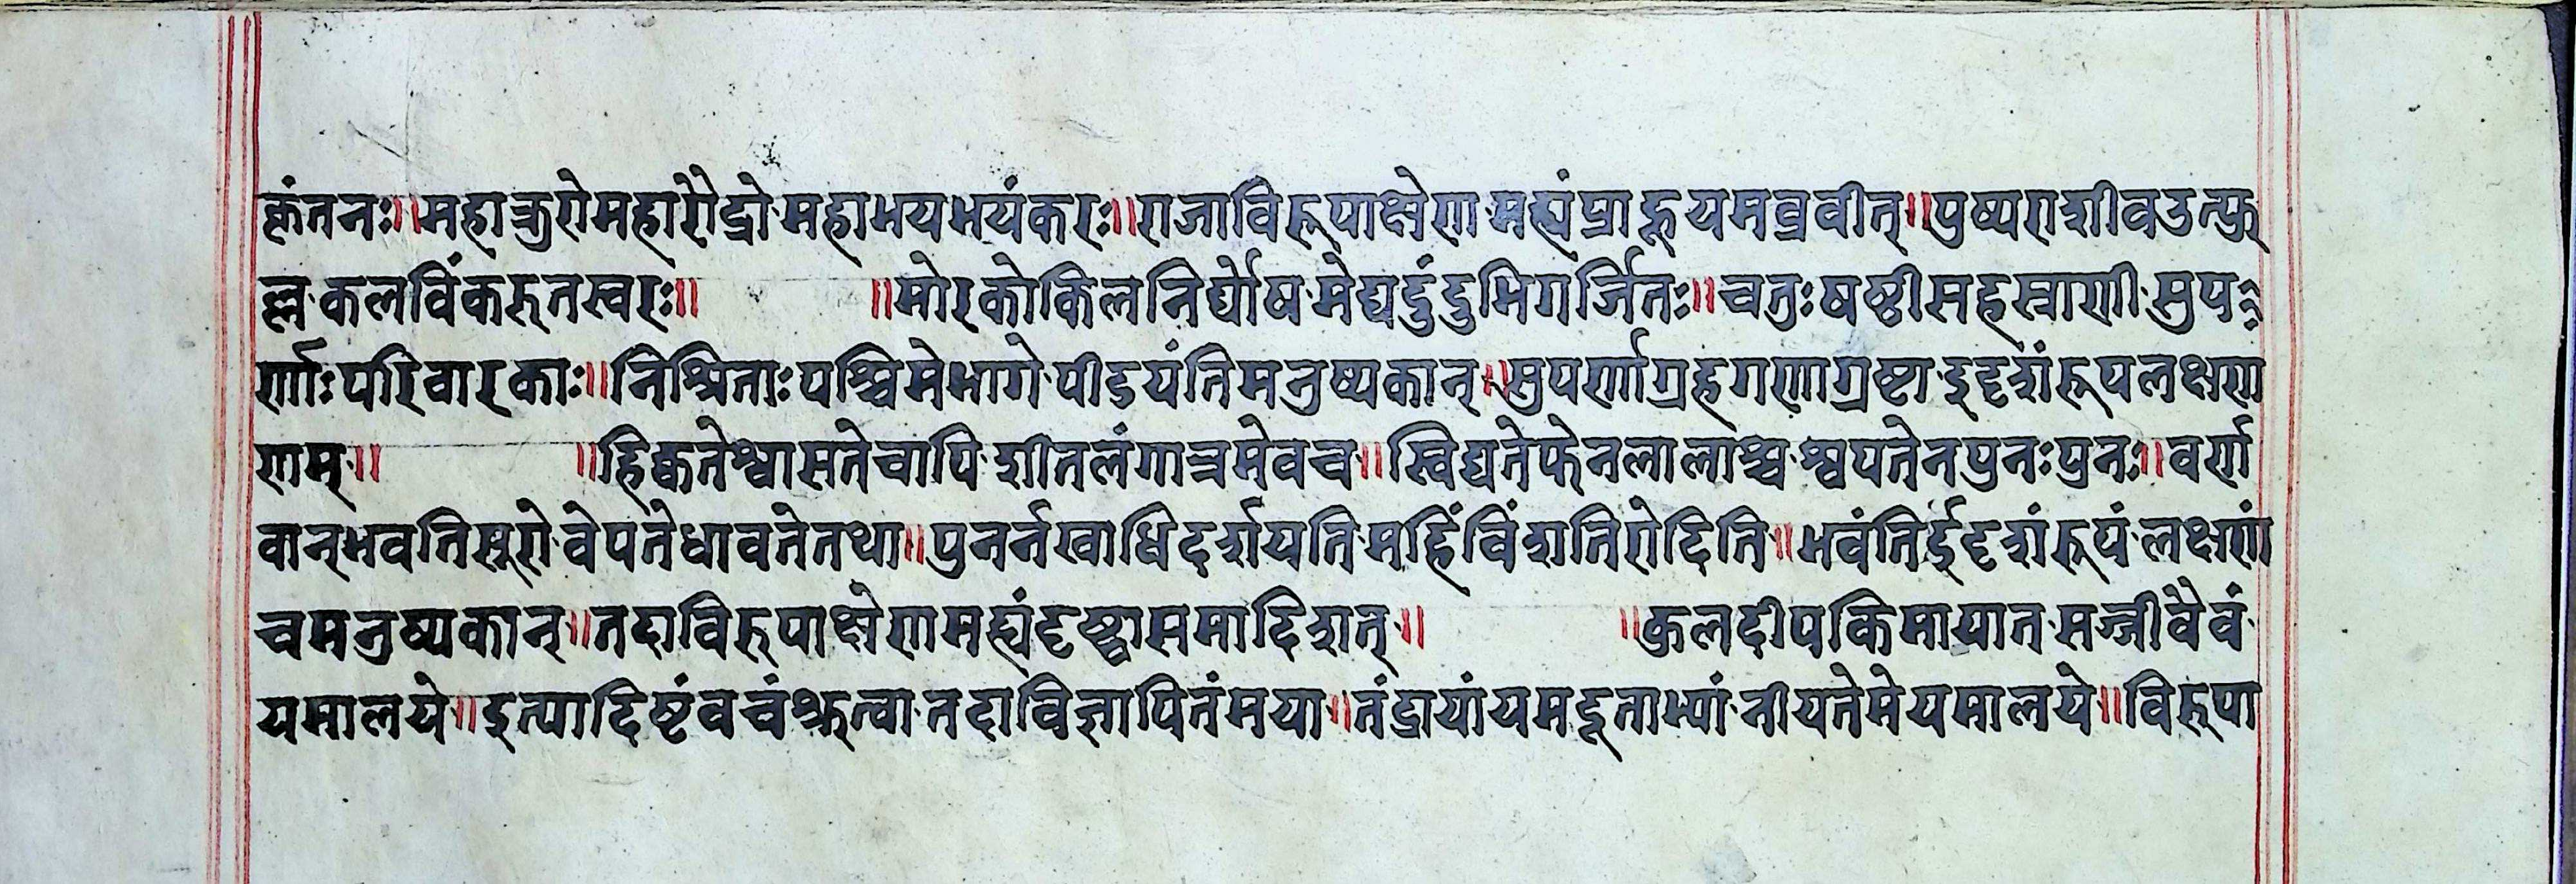 कृंतनः॥महाक्रुरोमहारौद्रो·महाभयभयंकरः॥राजाविरूपाक्षेण·मह्यंप्राहूयमब्रवीत्॥पुष्पराशीवउत्फु
ल्ल·कलविंकरुतस्वरः॥ ॥मोरकोकिलनिर्घोष·मेघदुंदुभिगर्जितः॥चतुःषष्ठीसहस्राणी·सुप
र्णाःपरिवारकाः॥निश्रिताःपश्चिमेभागे·पीडयंतिमनुष्यकान्॥सुपर्णाग्रहगणाग्रष्टा·इदृशंरूपलक्षण
णाम्॥ ॥हिक्कतेश्वासतेचापि·शीतलंगात्रमेवच॥स्विद्यतेफेनलालाश्च·श्वपतेनपुनःपुनः॥वर्ण
वान्भवतिसूरो·वेपतेधावतेतथा॥पुनर्नखाभिदर्शयति·महिंविंशतिरोदिति॥भवंतिर्इदृशंरूपं·लक्षणं
चमनुष्यकान्॥तदाविरुपाक्षेणमह्यंदृष्ट्वासमादिशत्॥ ॥कुलदीपकिमायात·सज्जीवैवं·
यमालये॥इत्यादिष्टंवचंश्रुत्वा·तदाविज्ञापितंमया॥तंद्रायांयमदूताभ्यां·नीयतेमेयमालये॥विरुपा